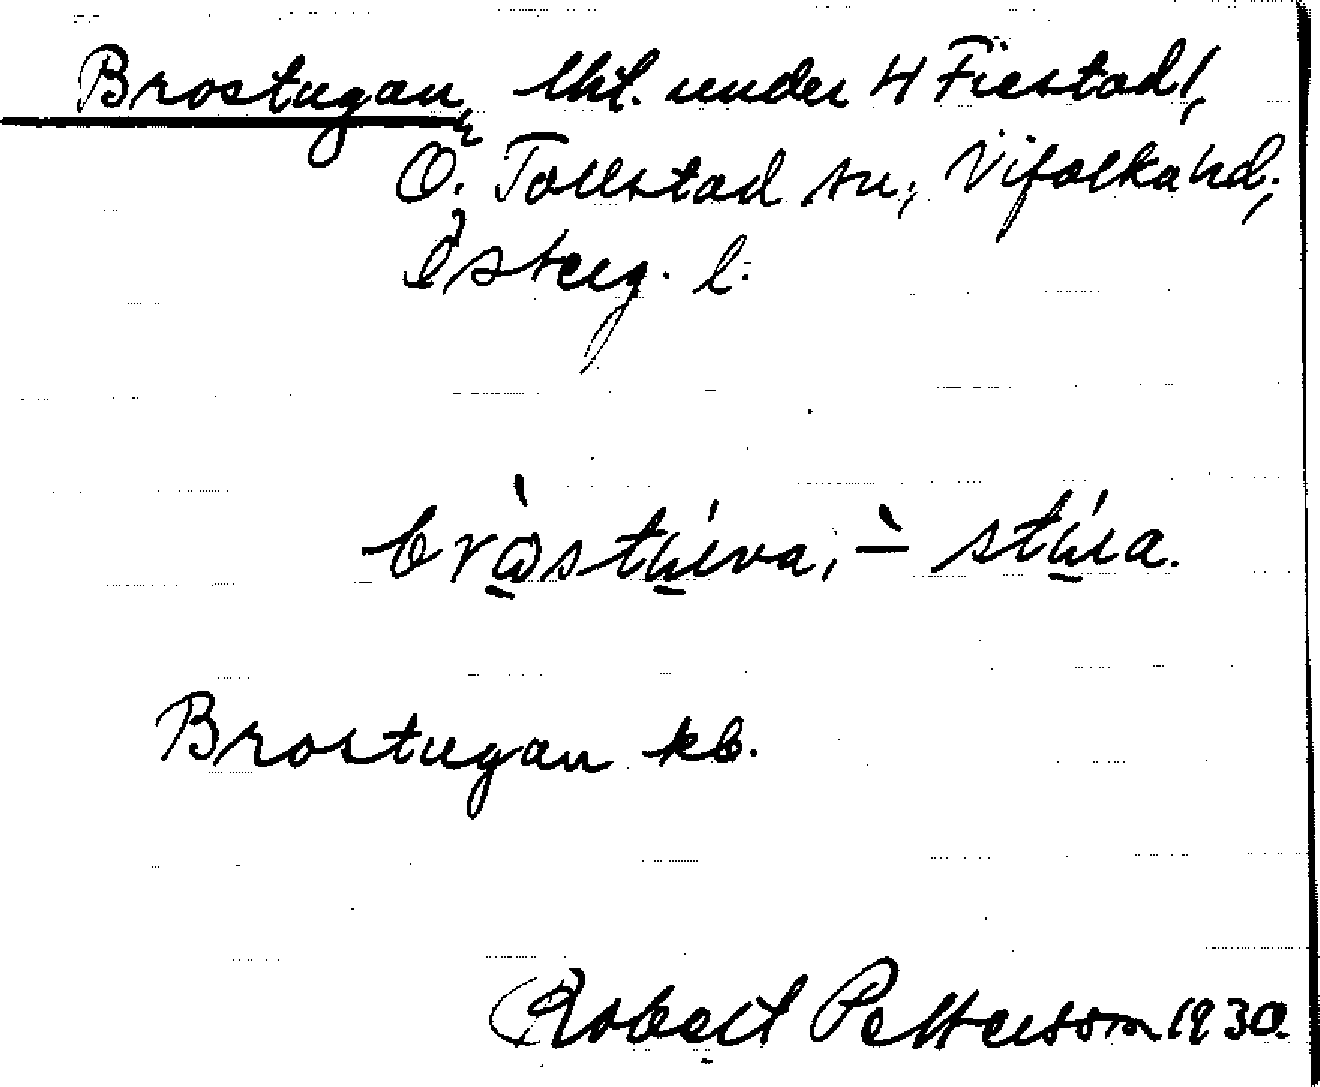 Brostugan, lht. under 4 Fiestad,
Ö. Tollstad sn, Vifolka hd,
Österg. l.
Brostugan kb.
Robert Petterson 1930